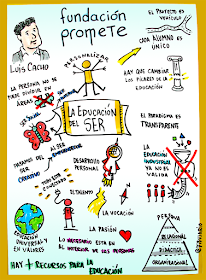 fundación
promete
EL PROYECTO ES
VEHÍCULO
CADA ALUMNO ES
ÚNICO
LUIS CACHO
PERSONALIZAR
LA PERSONA NO SE
PUEDE DIVIDIR EN
ÁREAS
SER SOCIAL
HAY QUE CAMBIAR
LOS PILARES DE LA
EDUCACIÓN
LA EDUCACIÓN
DEL SER
EL PARADIGMA ES
TRANSPARENTE
PASAMOS DEL
SER
CREATIVO
AL SER
EMPRENDEDOR
DESARROLLO
PERSONAL
LA EDUCACIÓN
INDUSTRIAL
YA NO ES
VÁLIDA
EL TALENTO
LA VOCACIÓN
LA PASIÓN
EDUCACIÓN
UNIVERSAL Y
EN VALORES
LO NECESARIO ESTÁ EN
EL INTERIOR DE LAS PERSONAS
HAY + RECURSOS PARA LA
EDUCACIÓN
PERSONA
DIDÁCTICA
ORGANIZACIONAL